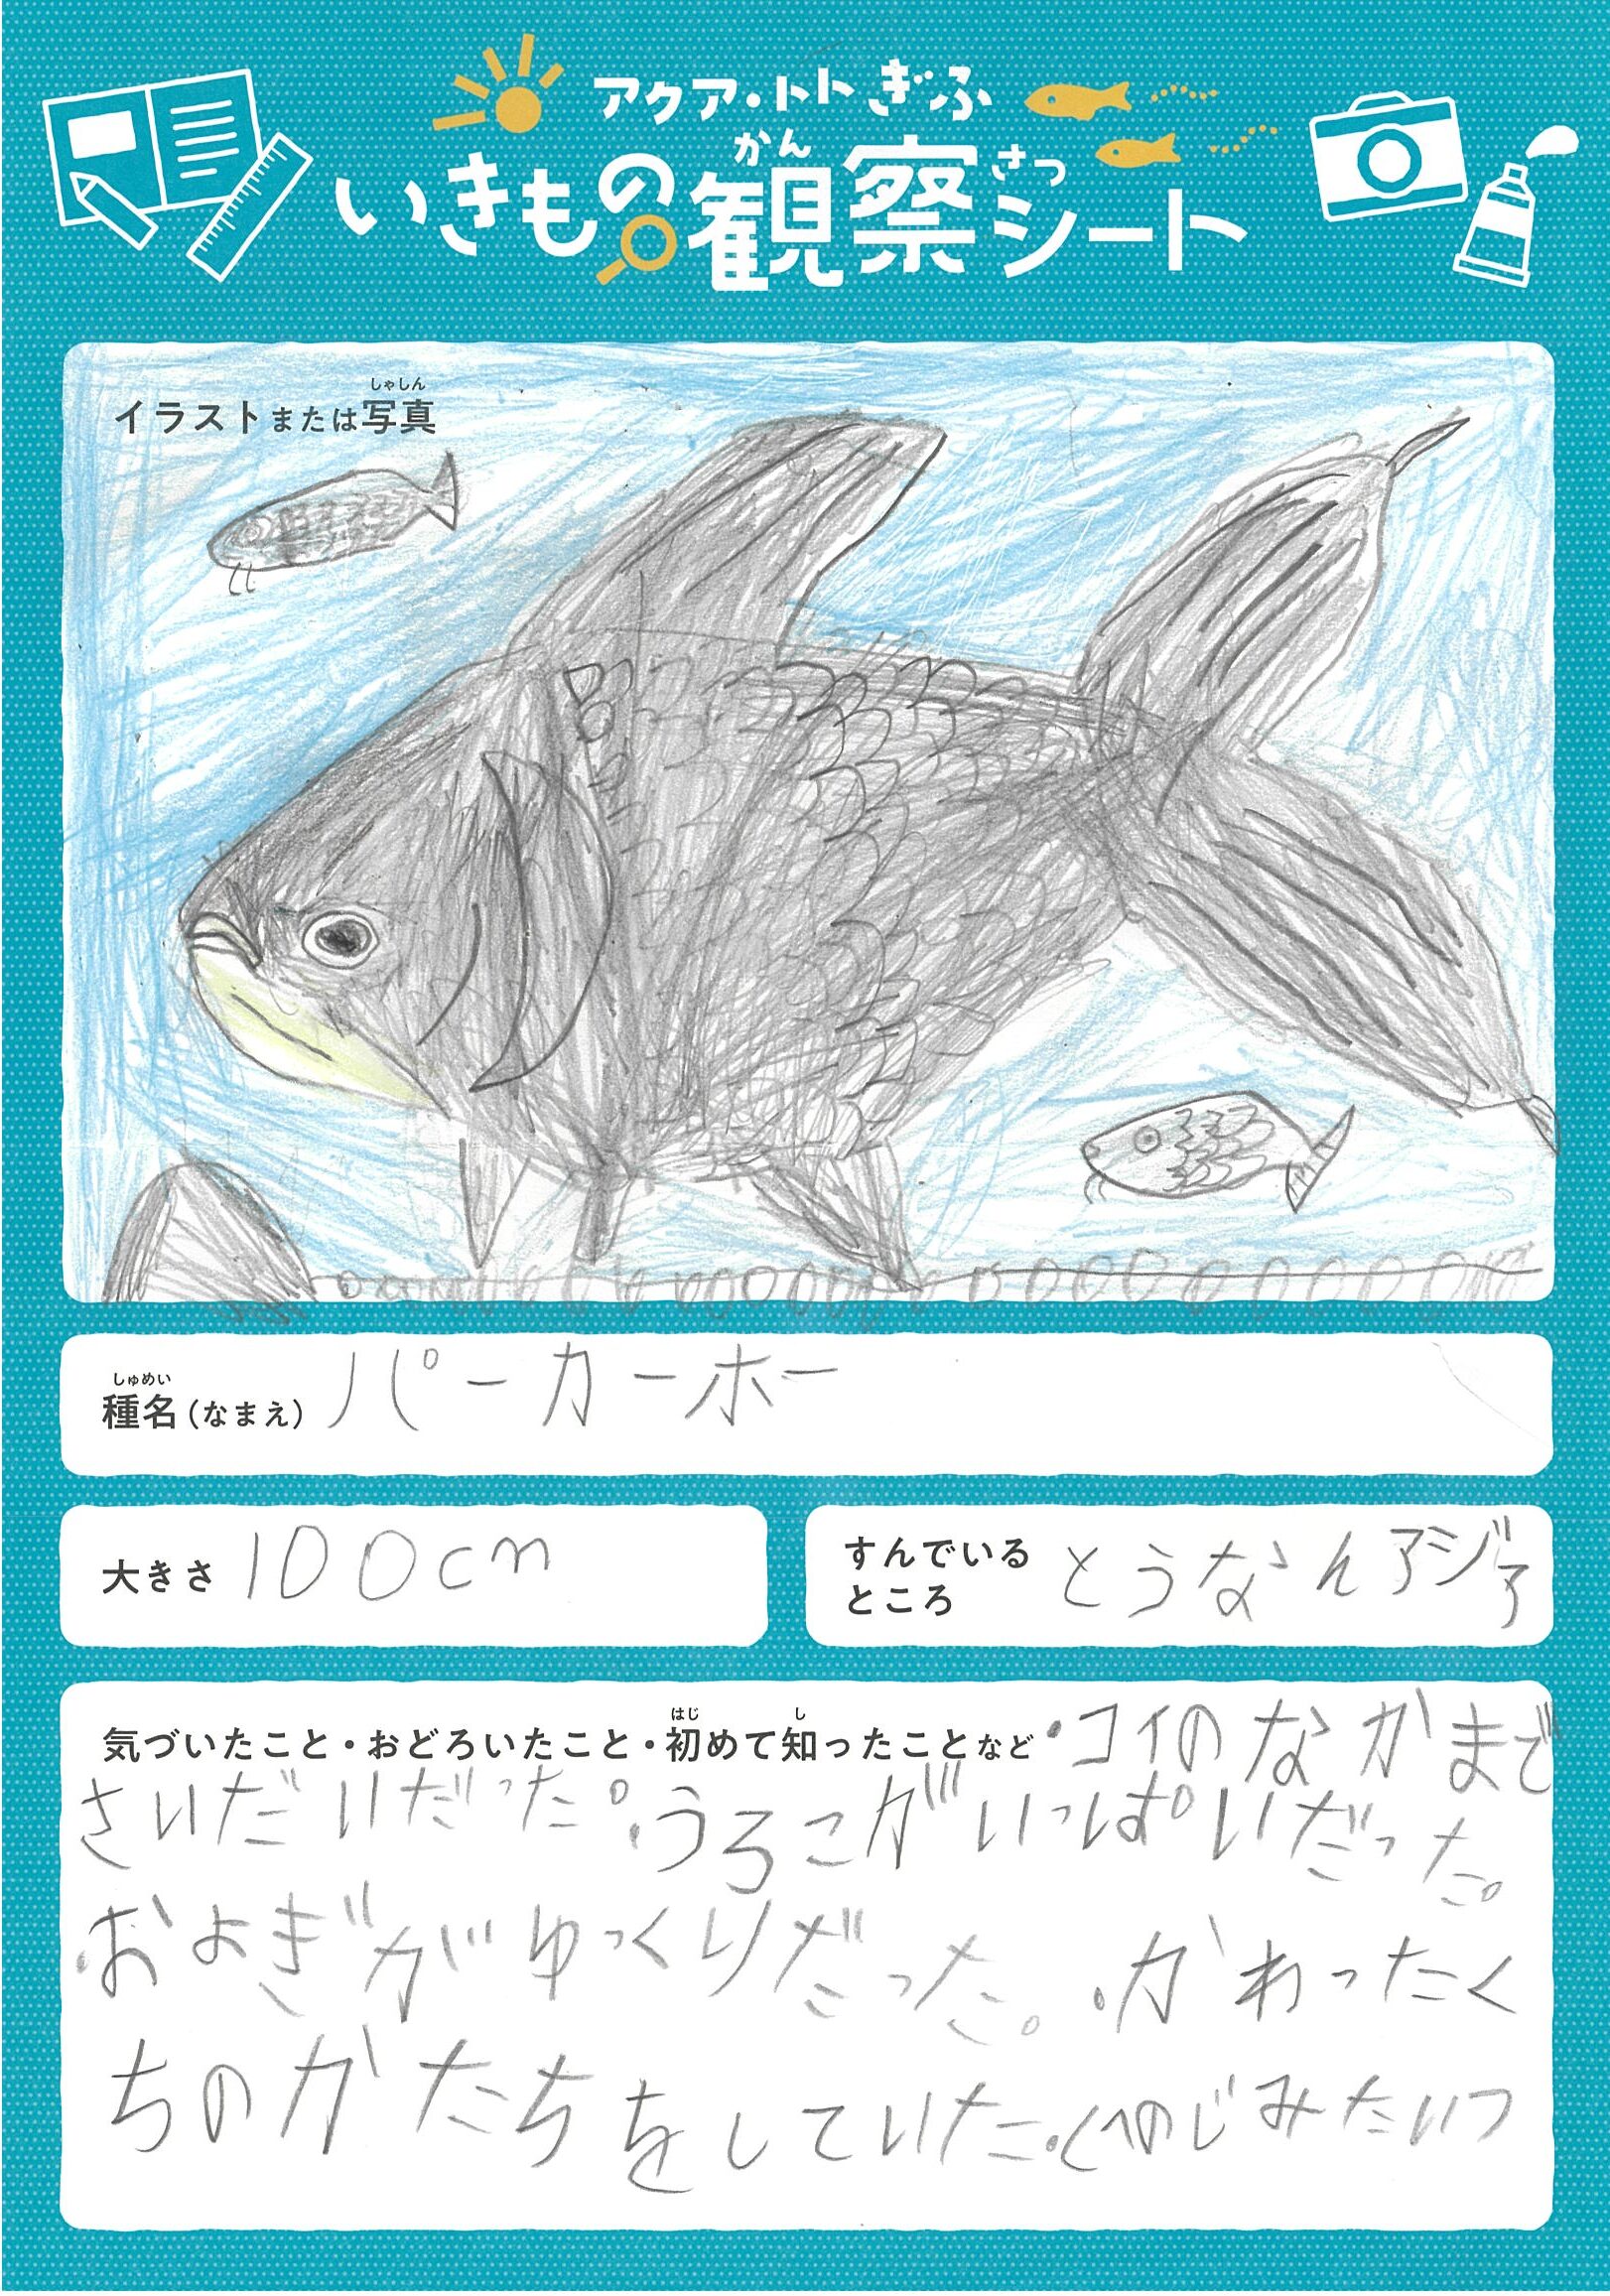 アクア・トト ぎふ
いきもの観察シート
かん さつ
しゃしん
イラストまたは写真
しゅめい
種名(なまえ) パーカーホー
大きさ 100cm
すんでいる
ところ とうなんアジア
はじ し
気づいたこと・おどろいたこと・初めて知ったことなど・コイのなかまで
さいだいだった。・うろこがいっぱいだった。
・およぎがゆっくりだった。・かわったく
ちのかたちをしていた。(への字みたいつ